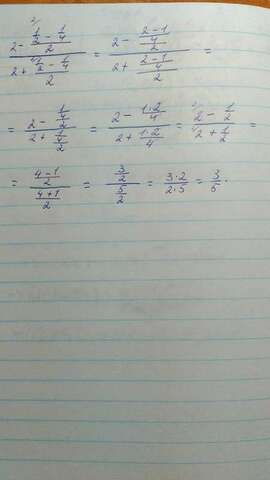 (2 - (1/2 - 1/4)/2) / (2 + (1/2 - 1/4)/2) = (2 - ((2-1)/4)/2) / (2 + ((2-1)/4)/2) =
= (2 - (1/4)/2) / (2 + (1/4)/2) = (2 - (1·2)/4) / (2 + (1·2)/4) = (2 - 1/2) / (2 + 1/2) =
= ((4-1)/2) / ((4+1)/2) = (3/2) / (5/2) = (3·2)/(2·5) = 3/5.